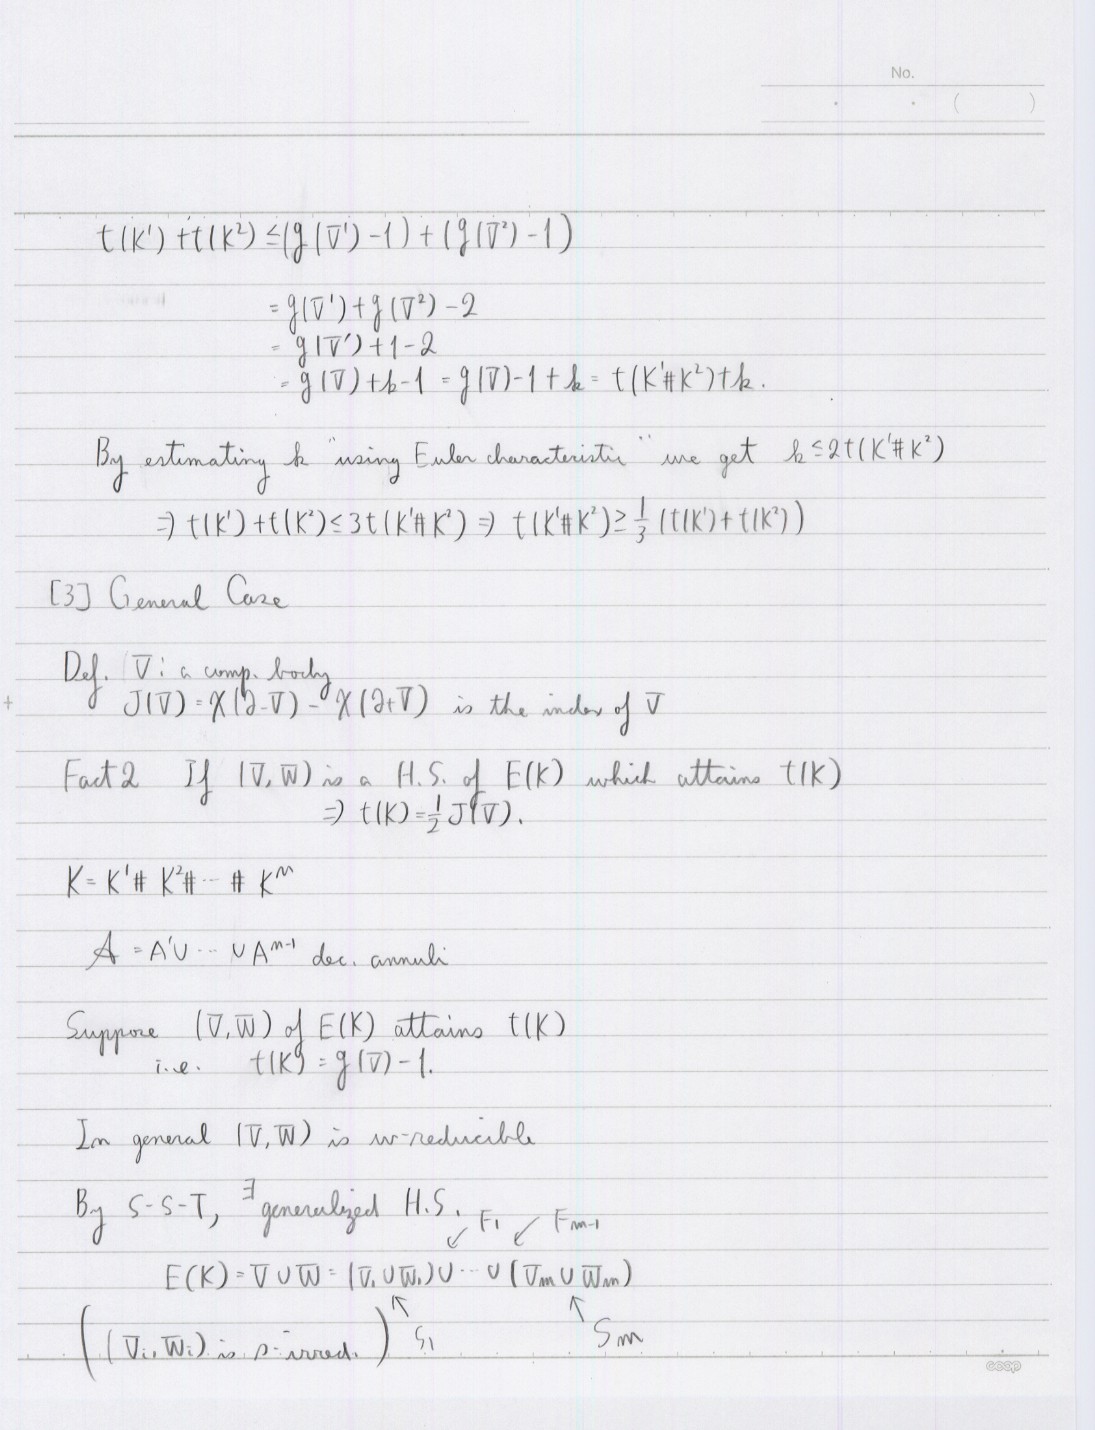 No.
( )
t(K¹)+t(K²)≤(g(V¹)-1)+(g(V²)-1)
=g(V¹)+g(V²)-2
=g(V')+1-2
=g(V)+k-1=g(V)-1+k=t(K¹#K²)+k.
By estimating k "using Euler characteristic" we get k≤2t(K¹#K²)
⇒t(K¹)+t(K²)≤3t(K¹#K²)⇒t(K¹#K²)≥1/3(t(K¹)+t(K²))
[3] General Case
Def. V: a comp. body
J(V)=χ(∂-V)-χ(∂+V) is the index of V
Fact 2 If (V,W) is a H.S. of E(K) which attains t(K)
⇒t(K)=1/2J(V).
K=K¹#K²#…#Kⁿ
A=A¹∪…∪Aⁿ⁻¹ dec. annuli
Suppose (V,W) of E(K) attains t(K)
i.e. t(K)=g(V)-1.
In general (V,W) is w-reducible
By S-S-T, ∃generalized H.S.
F₁ Fm-1
E(K)=V∪W=(V₁∪W₁)∪…∪(Vm∪Wm)
((Vi,Wi) is s-irred.) S₁ Sm
coop